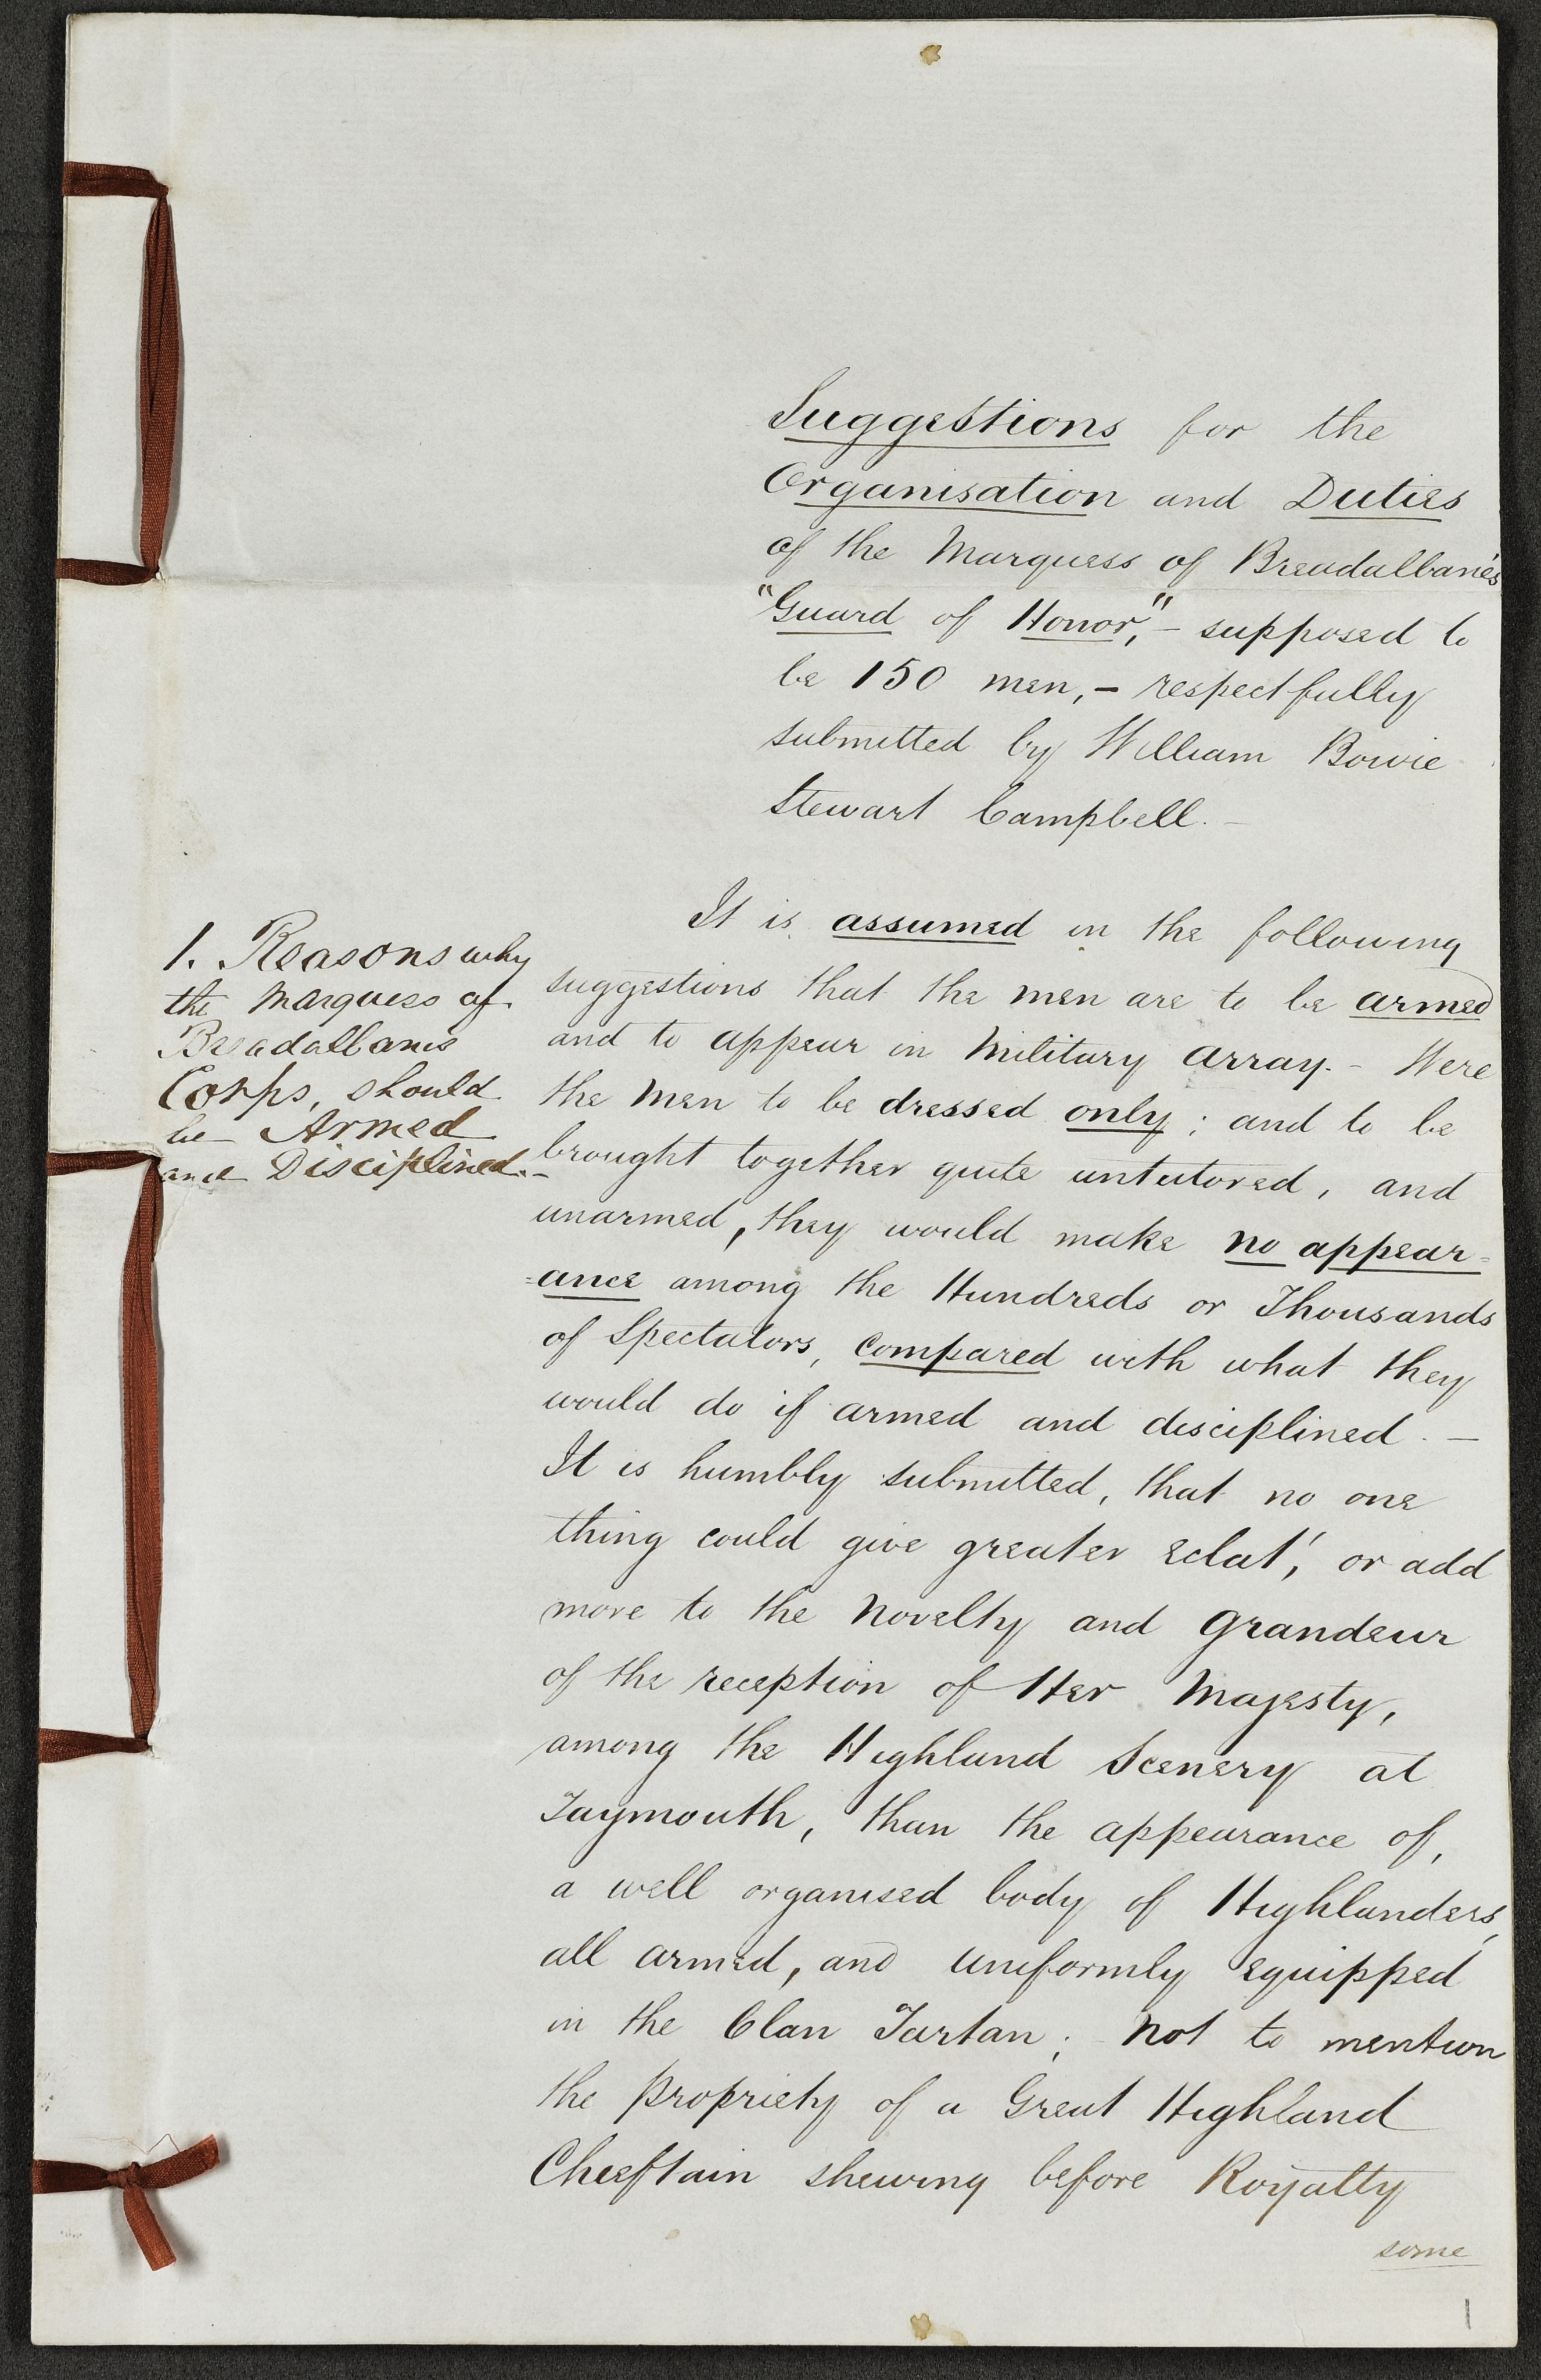 Suggestions for the
Organisation and Duties
of the Marquess of Breadalbane's
"Guard of Honor," - supposed to
be 150 men, - respectfully
submitted by William Bowie
Stewart Campbell. -
1. Reasons why
the Marquess of
Breadalbanes
Corps, should
be Armed
and Disciplined. -
It is assumed in the following
suggestions that the men are to be armed
and to appear in Military array. - Were
the men to be dressed only; and to be
brought together quite untutored, and
unarmed, they would make no appear=
=ance among the Hundreds or Thousands
of Spectators, compared with what they
would do if armed and disciplined. -
It is humbly submitted, that no one
thing could give greater eclat', or add
more to the Novelty and Grandeur
of the reception of Her Majesty,
among the Highland Scenery at
Taymouth, than the appearance of,
a well organised body of Highlanders,
all armed, and uniformly equipped
in the Clan Tartan; - not to mention
the propriety of a Great Highland
Chieftain shewing before Royalty
some
1